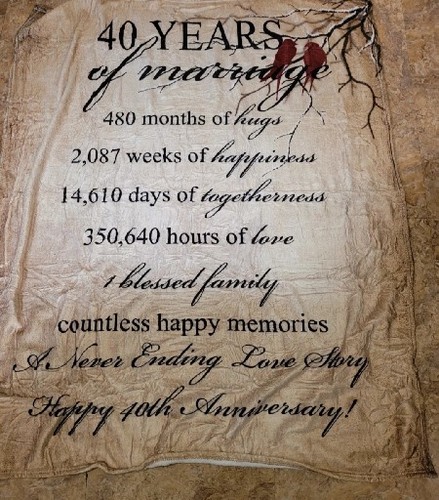 40 YEARS
of marriage
480 months of hugs
2,087 weeks of happiness
14,610 days of togetherness
350,640 hours of love
1 blessed family
countless happy memories
A Never Ending Love Story
Happy 40th Anniversary!